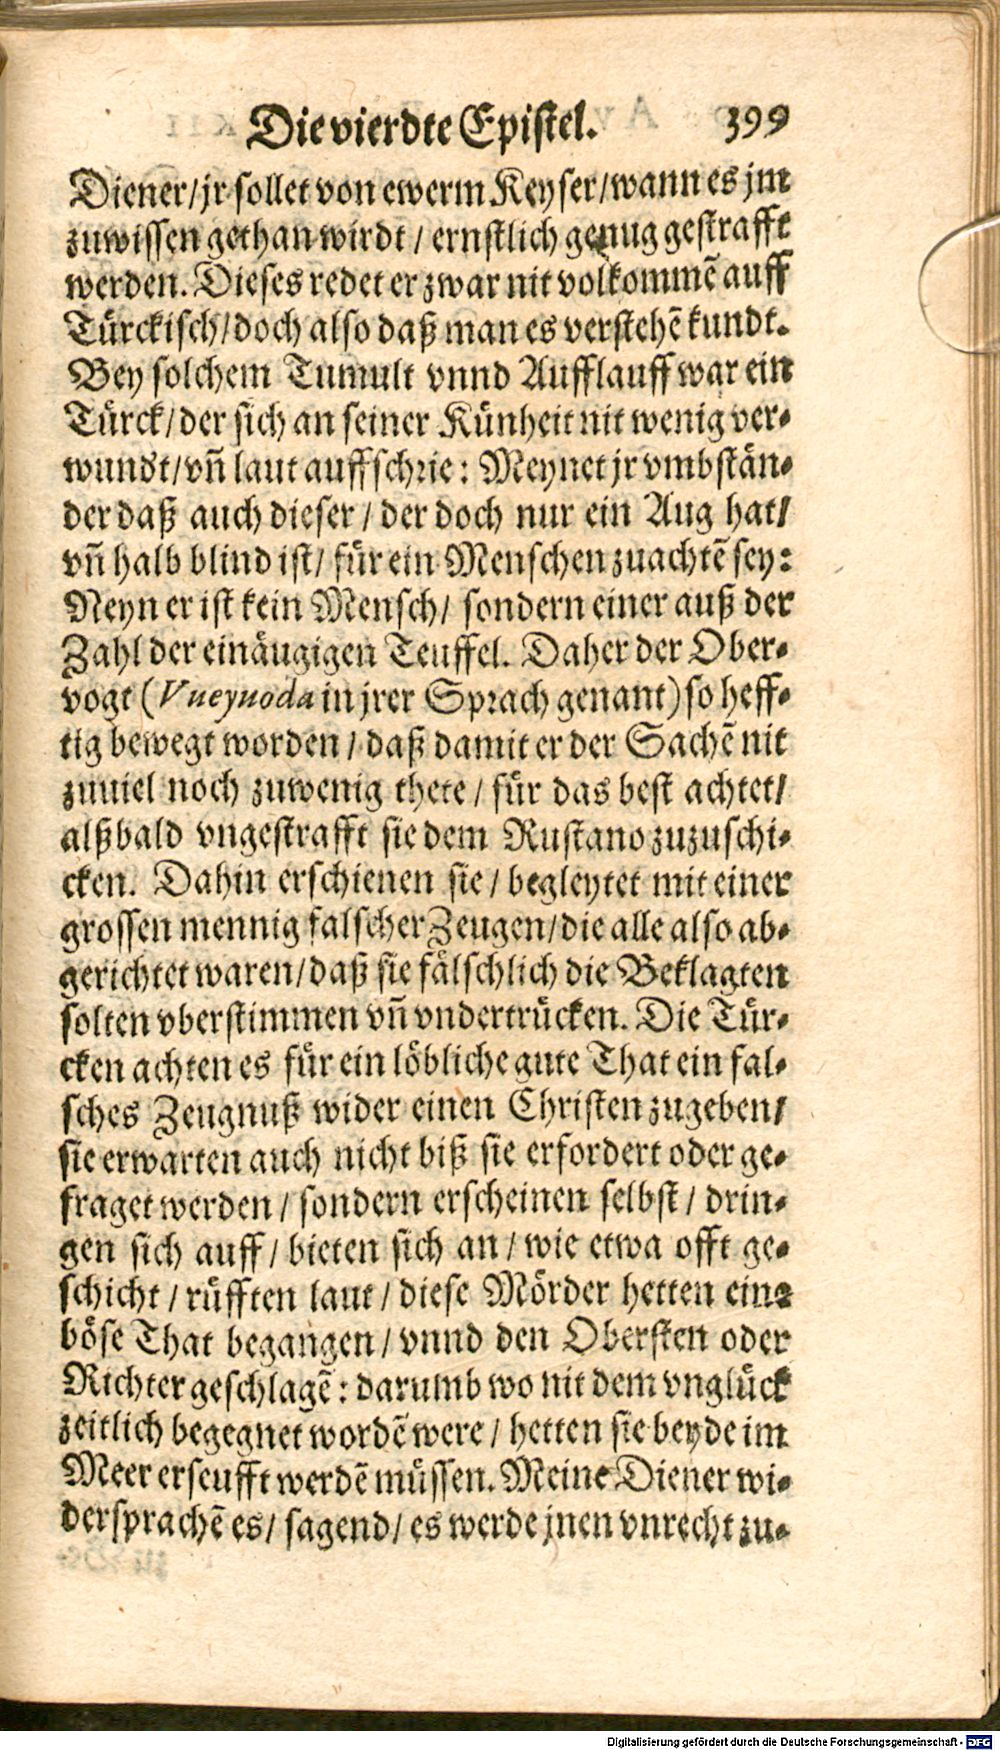 Die vierdte Epistel. 399
Diener/ jr sollet von ewerm Keyser/ wann es jm
zuwissen gethan wirdt / ernstlich genug gestrafft
werden. Dieses redet er zwar nit volkommē auff
Türckisch/ doch also daß man es verstehē kundt.
Bey solchem Tumult vnnd Aufflauff war ein
Türck/ der sich an seiner Künheit nit wenig ver-
wundt/ vñ laut auffschrie: Meynet jr vmbstän-
der daß auch dieser / der doch nur ein Aug hat/
vñ halb blind ist/ für ein Menschen zuachtē sey:
Neyn er ist kein Mensch/ sondern einer auß der
Zahl der einäugigen Teuffel. Daher der Ober-
vogt (Vueyuoda in jrer Sprach genant) so heff-
tig bewegt worden / daß damit er der Sachē nit
zuuiel noch zuwenig thete / für das best achtet/
alßbald vngestrafft sie dem Rustano zuzuschi-
cken. Dahin erschienen sie / begleytet mit einer
grossen mennig falscher Zeugen/ die alle also ab-
gerichtet waren/ daß sie fälschlich die Beklagten
solten vberstimmen vñ vndertrücken. Die Tür-
cken achten es für ein löbliche gute That ein fal-
sches Zeugnuß wider einen Christen zugeben/
sie erwarten auch nicht biß sie erfordert oder ge-
fraget werden / sondern erscheinen selbst / drin-
gen sich auff / bieten sich an / wie etwa offt ge-
schicht / rüfften laut / diese Mörder hetten eine
böse That begangen / vnnd den Obersten oder
Richter geschlagē: darumb wo nit dem vnglück
zeitlich begegnet wordē were / hetten sie beyde im
Meer erseufft werdē müssen. Meine Diener wi-
dersprachē es/ sagend/ es werde jnen vnrecht zu-
Digitalisierung gefördert durch die Deutsche Forschungsgemeinschaft - DFG